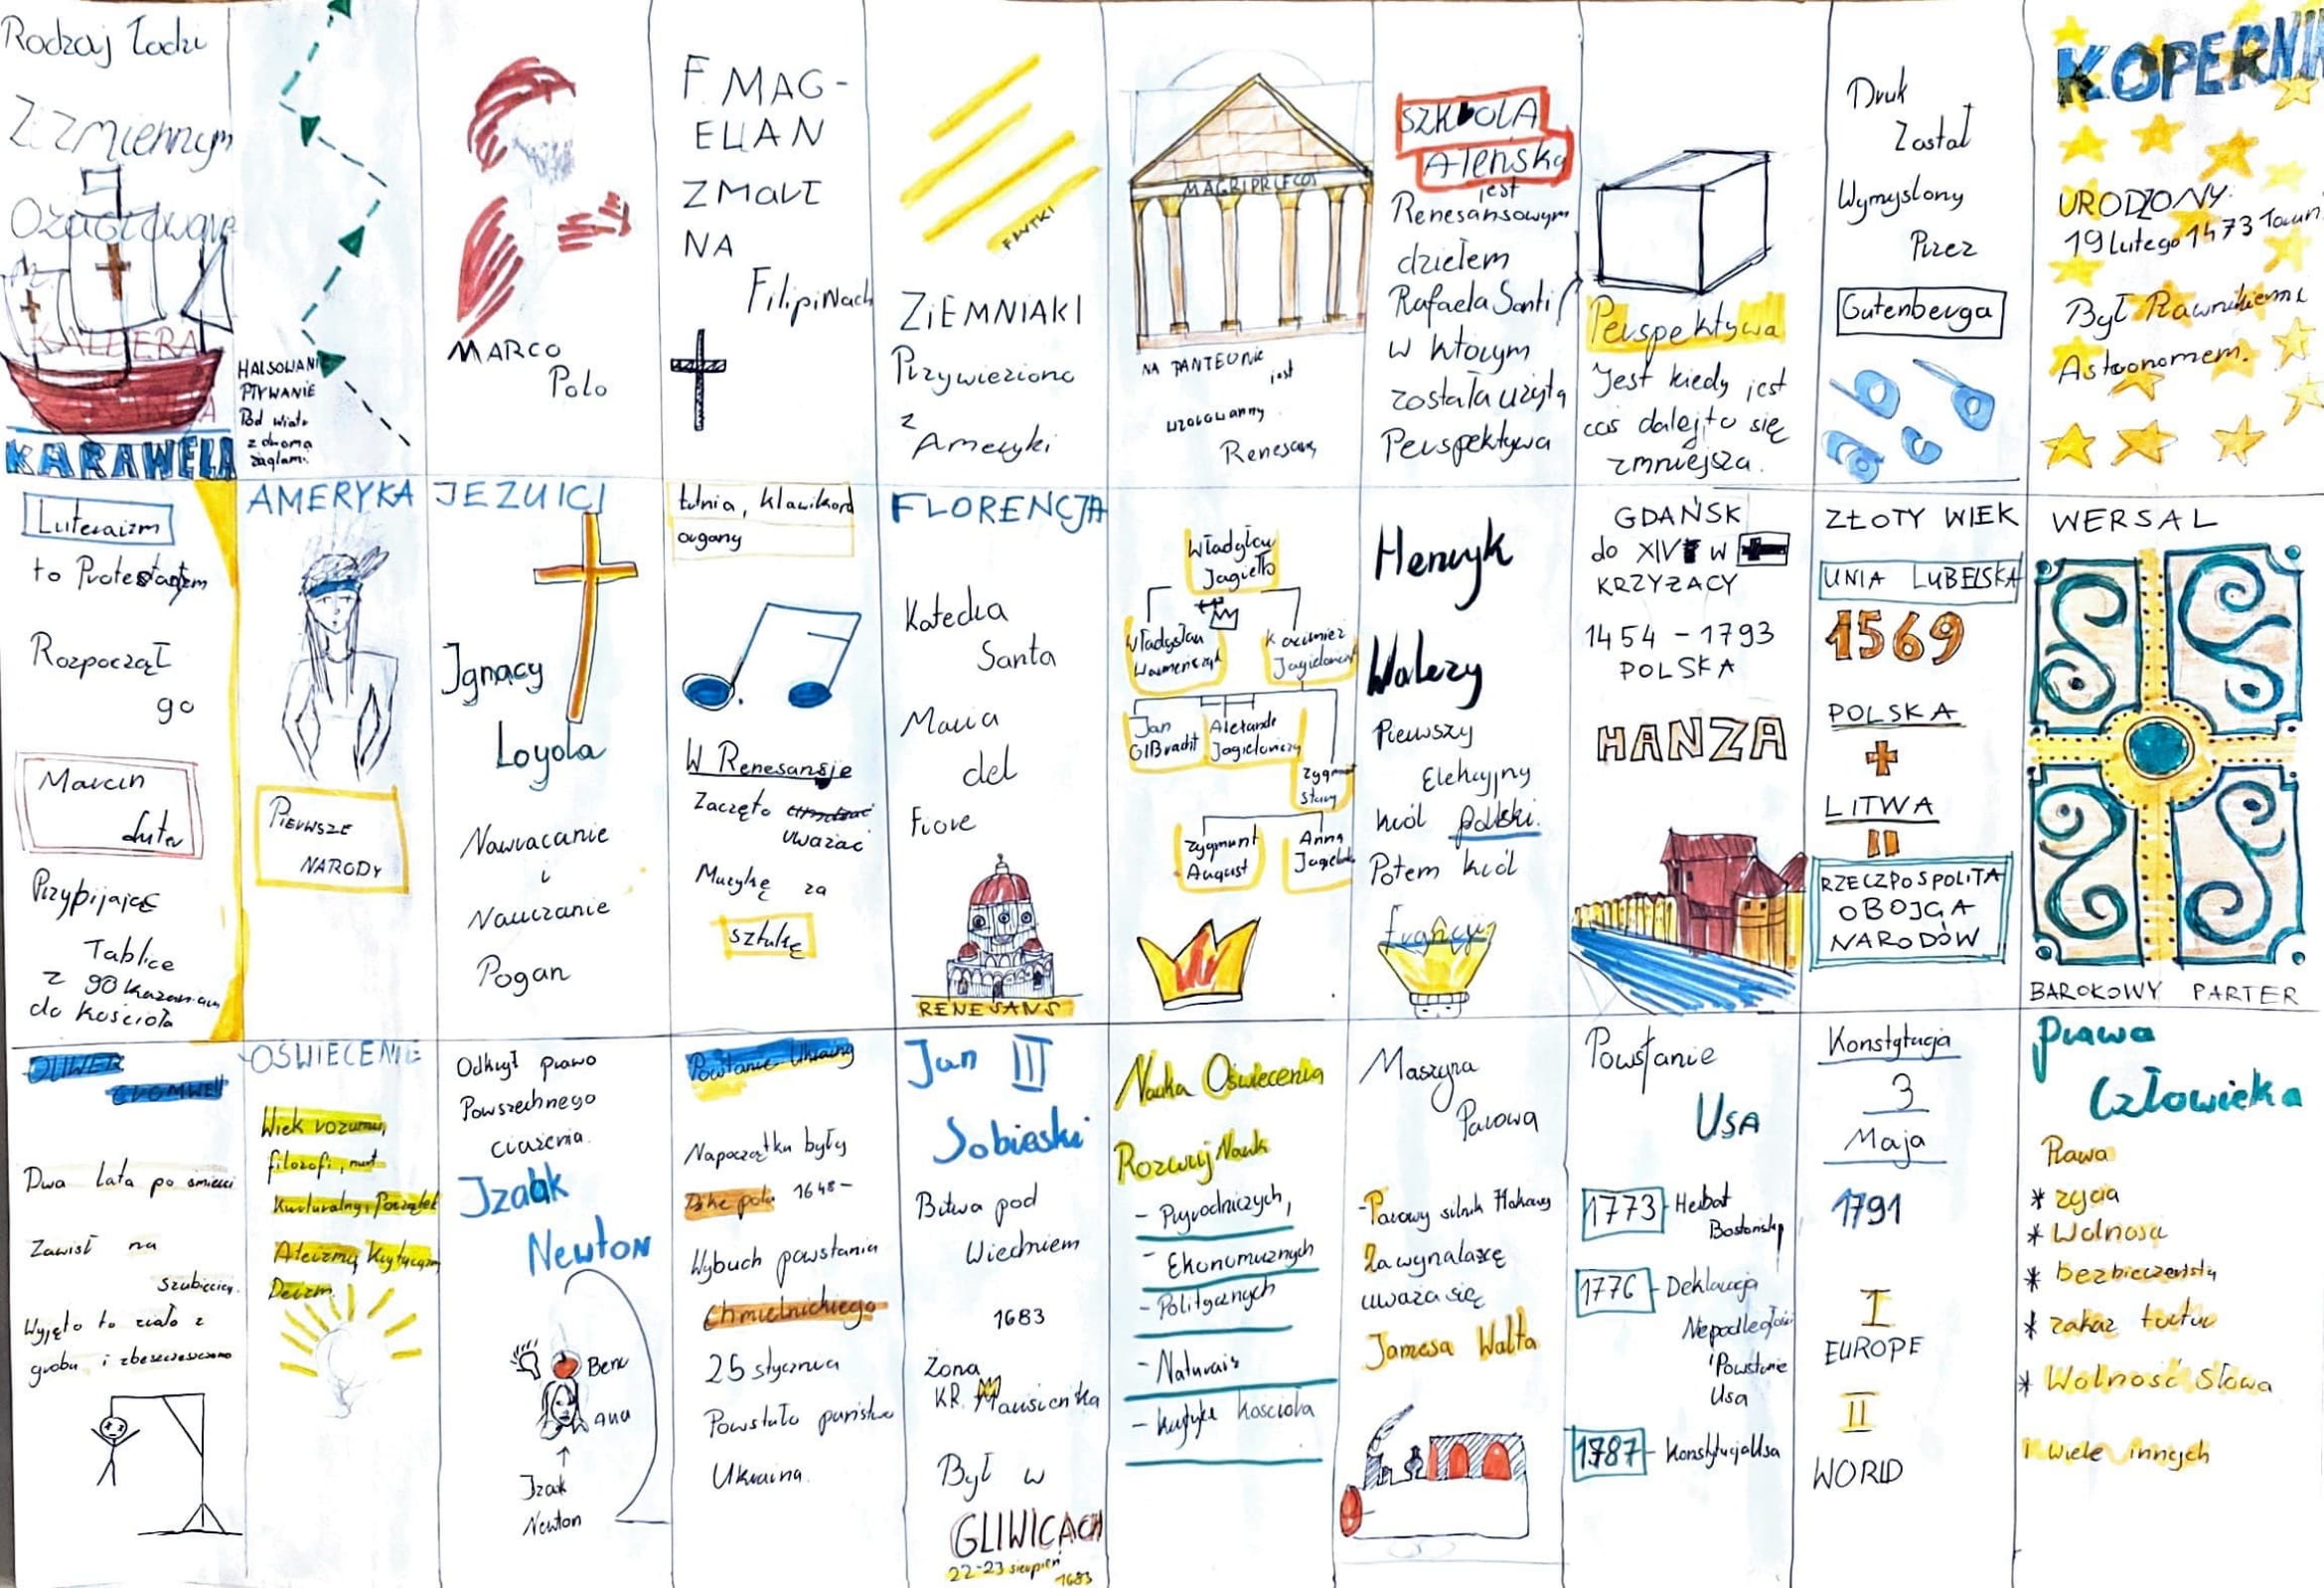 Rodzaj Łodzi
Z zmiennym
Ożaglowaniem
KARAWELA
HALSOWANIE
PŁYWANIE
Pod wiatr
z dwoma
żaglami
MARCO
Polo
F. MAG-
ELLAN
ZMARŁ
NA
Filipinach
FRYTKI
ZiEMNIAKI
Przywieziono
z
Ameryki
NA PANTEONIE
jest
wzorowanny
Renesans
SZKOŁA
ATEŃSKA
jest
Renesansowym
dziełem
Rafaela Santi
w którym
została użyta
Perspektywa
Perspektywa
Jest kiedy jest
coś dalej to się
zmniejsza.
Druk
Został
Wymyślony
Przez
Gutenberga
KOPERNIK
URODZONY:
19 lutego 1473 Toruń
Był Prawnikiem i
Astronomem.
Luteraizm
to Protestantyzm
Rozpoczął
go
Marcin
Luter
Przybijając
Tablice
z 90 kazaniami
do kościoła
AMERYKA
PIERWSZE
NARODY
JEZUICI
Ignacy
Loyola
Nawracanie
i
Nauczanie
Pogan
lutnia, klawikord
organy
W Renesansie
Zaczęto
uważać
Muzykę za
sztukę
FLORENCJA
Katedra
Santa
Maria
del
Fiore
RENESANS
Władysław
Jagiełło
Władysław
Warneńczyk
Kazimierz
Jagielończyk
Jan
Olbracht
Aleksander
Jagielończyk
Zygmunt
Stary
Zygmunt
August
Anna
Jagielonka
Henryk
Walezy
Pierwszy
Elekcyjny
król polski.
Potem król
Francji
GDAŃSK
do XIV W
KRZYŻACY
1454 - 1793
POLSKA
HANZA
ZŁOTY WIEK
UNIA LUBELSKA
1569
POLSKA
+
LITWA
RZECZPOSPOLITA
OBOJGA
NARODÓW
WERSAL
BAROKOWY PARTER
OLIWER
CROMWELL
Dwa lata po śmierci
Zawisł na
szubienicy.
Wyjęto to ciało z
grobu i zbeszczeszczono
OŚWIECENIE
Wiek rozumu,
filozofi, nurt
Kurturalny, Początek
Ateizmu, Krytycyzm,
Deizm.
Odkrył prawo
Powszechnego
ciążenia.
Izaak
Newton
Benc
ana
Izaak
Newton
Powstanie Ukrainy
Napoczątku były
Dzikie pola 1648-
Wybuch powstania
Chmielnickiego
25 stycznia
Powstało państwo
Ukraina.
Jan III
Sobieski
Bitwa pod
Wiedniem
1683
Żona
KR. Marysieńka
Był w
GLIWICACH
22-23 sierpień
1683
Nauka Oświecenia
Rozwój Nauk
- Przyrodniczych,
- Ekonomicznych
- Politycznych
- Krytyka kościoła
Maszyna
Parowa
- Parowy silnik tłokowy
Za wynalazcę
uważa się
Jamesa Watta
Powstanie
USA
1773 - Herbat. Bostońska
1776 - Deklaracja
Niepodległości
i Powstanie
Usa
1787 - Konstytucja Usa
Konstytucja
3
Maja
1791
I
EUROPE
II
WORLD
Prawa
Człowieka
Prawa
* życia
* Wolności
* bezpieczeństwa
* zakaz tortur
* Wolność Słowa
i wiele innych